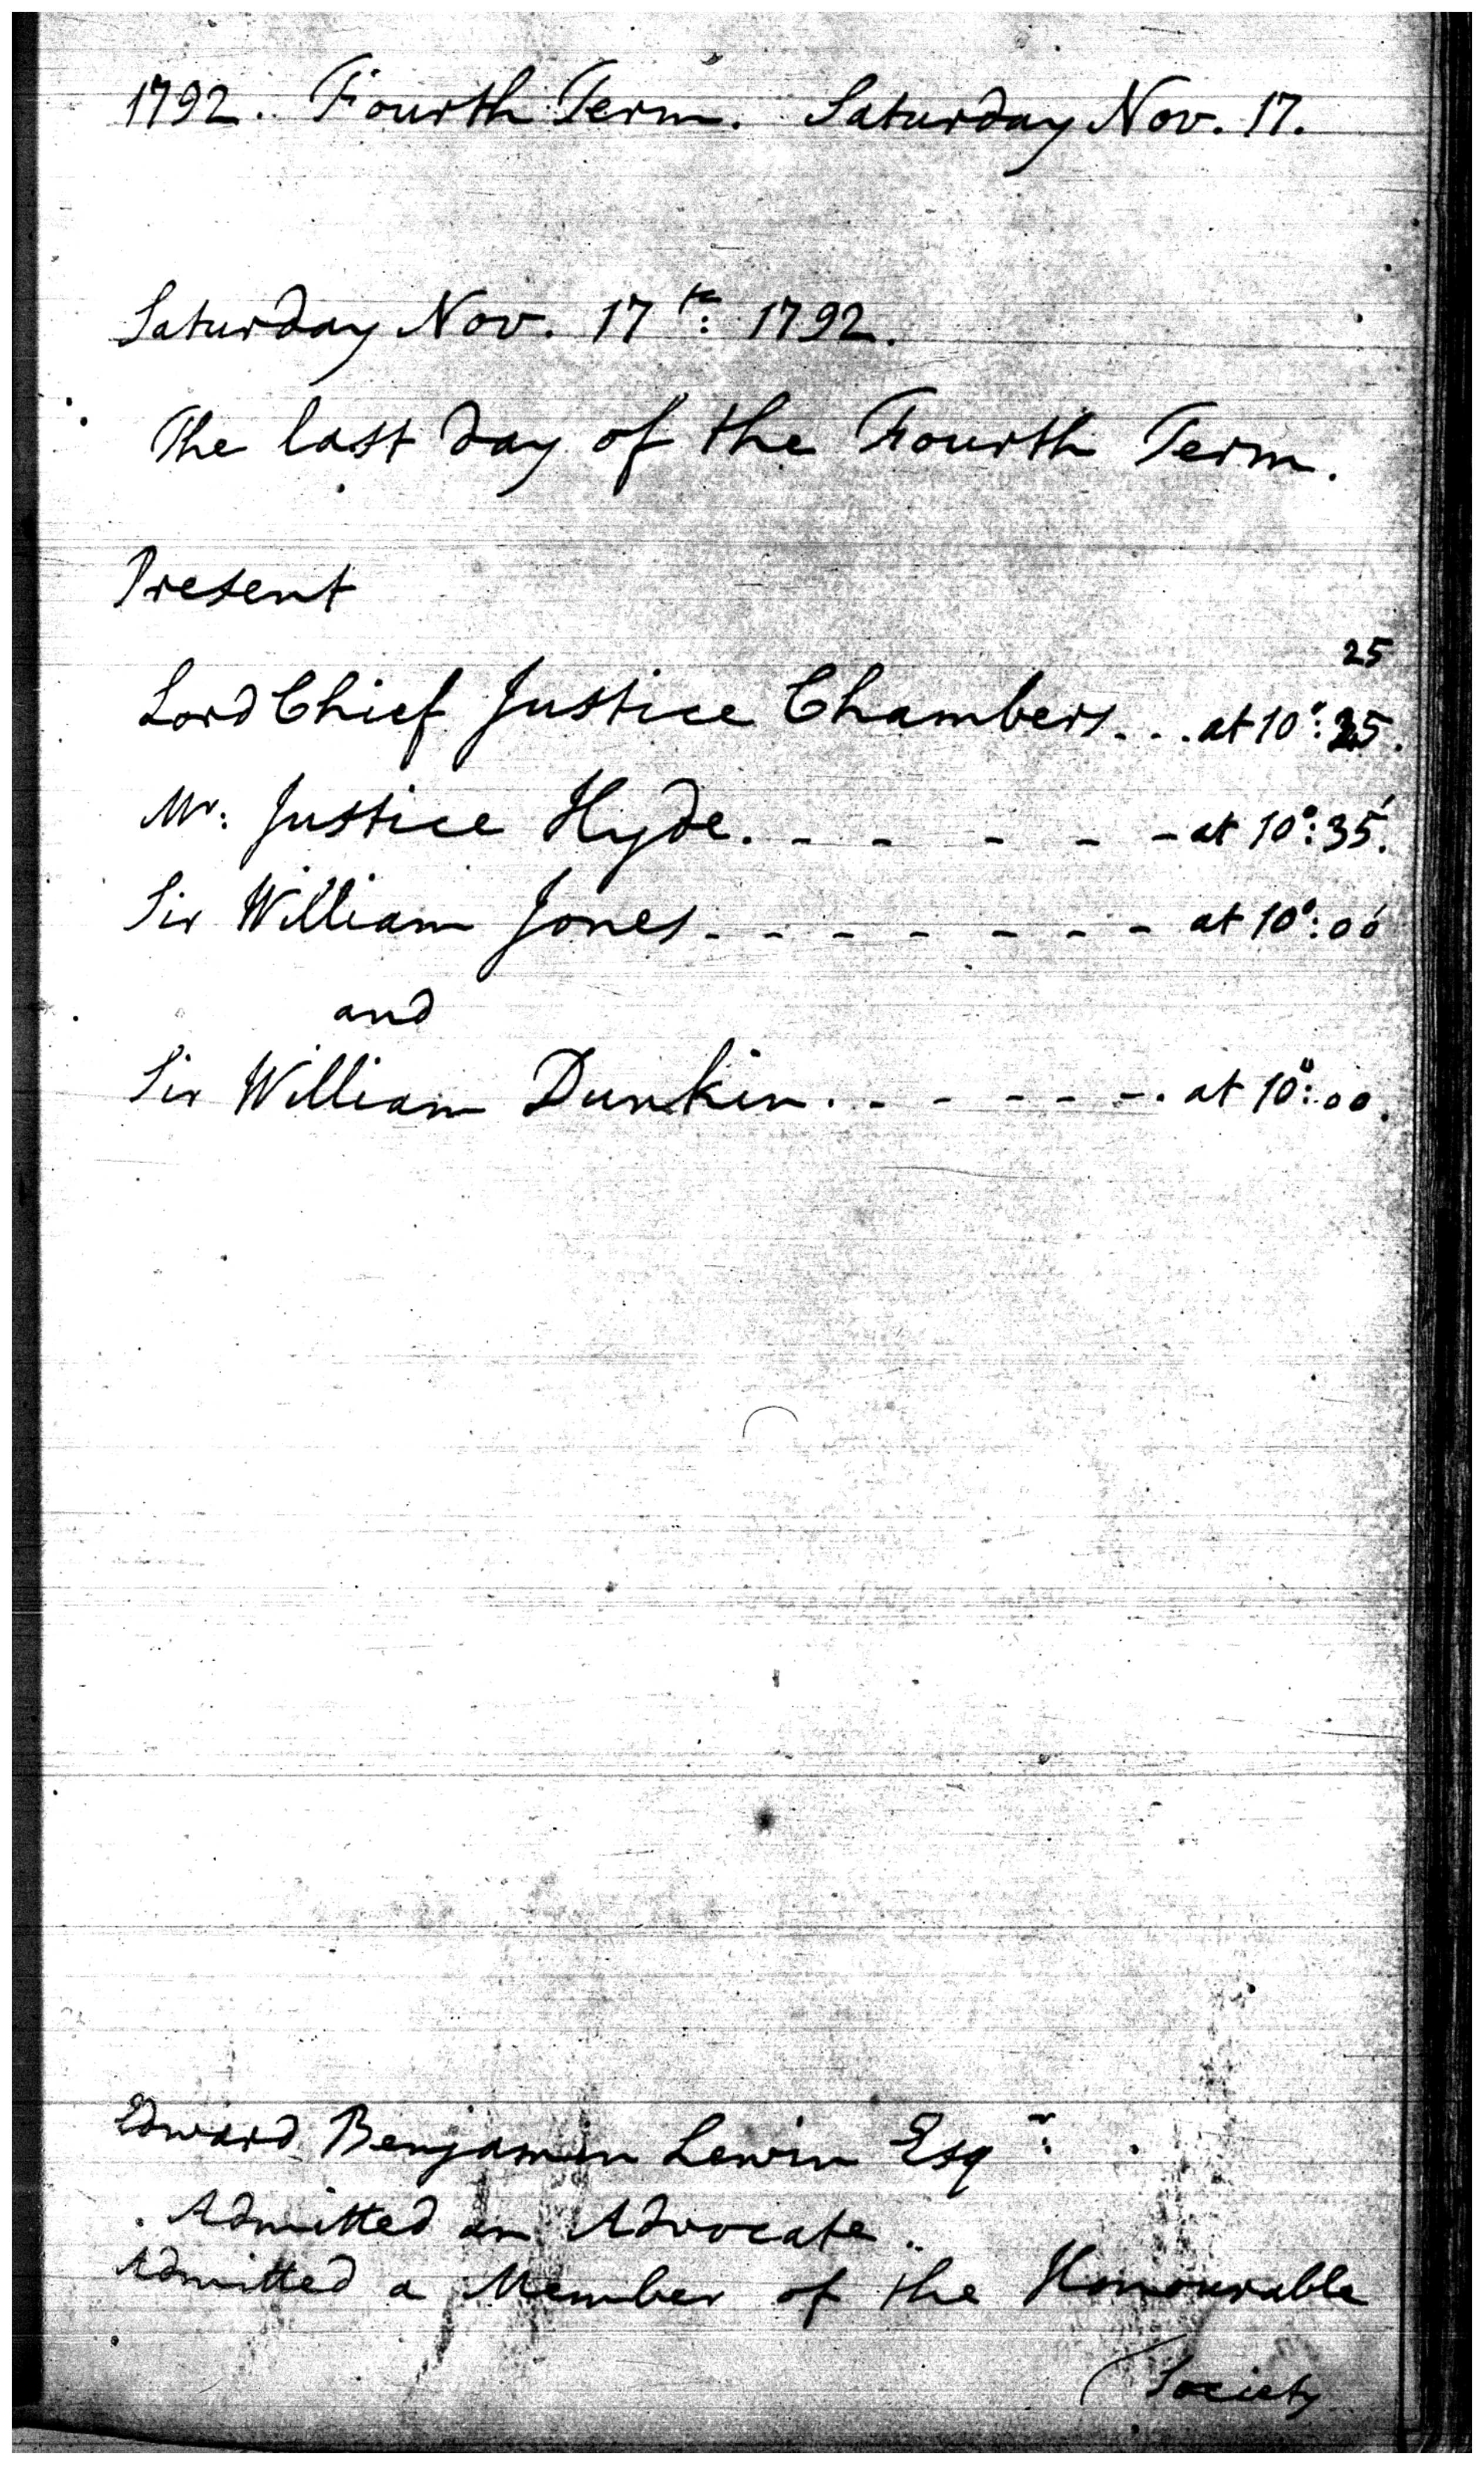 1792. Fourth Term. Saturday Nov. 17.
Saturday Nov. 17th: 1792.
The last day of the Fourth Term.
Present
25
Lord Chief Justice Chambers... at 10°: 25.
Mr: Justice Hyde. - - - - - at 10°: 35'.
Sir William Jones - - - - - - - at 10°: 00'
and
Sir William Dunkin. - - - - - . at 10°: 00.
Edward Benjamin Lewin Esqr:
Admitted an Advocate.
Admitted a Member of the Honourable
(Society